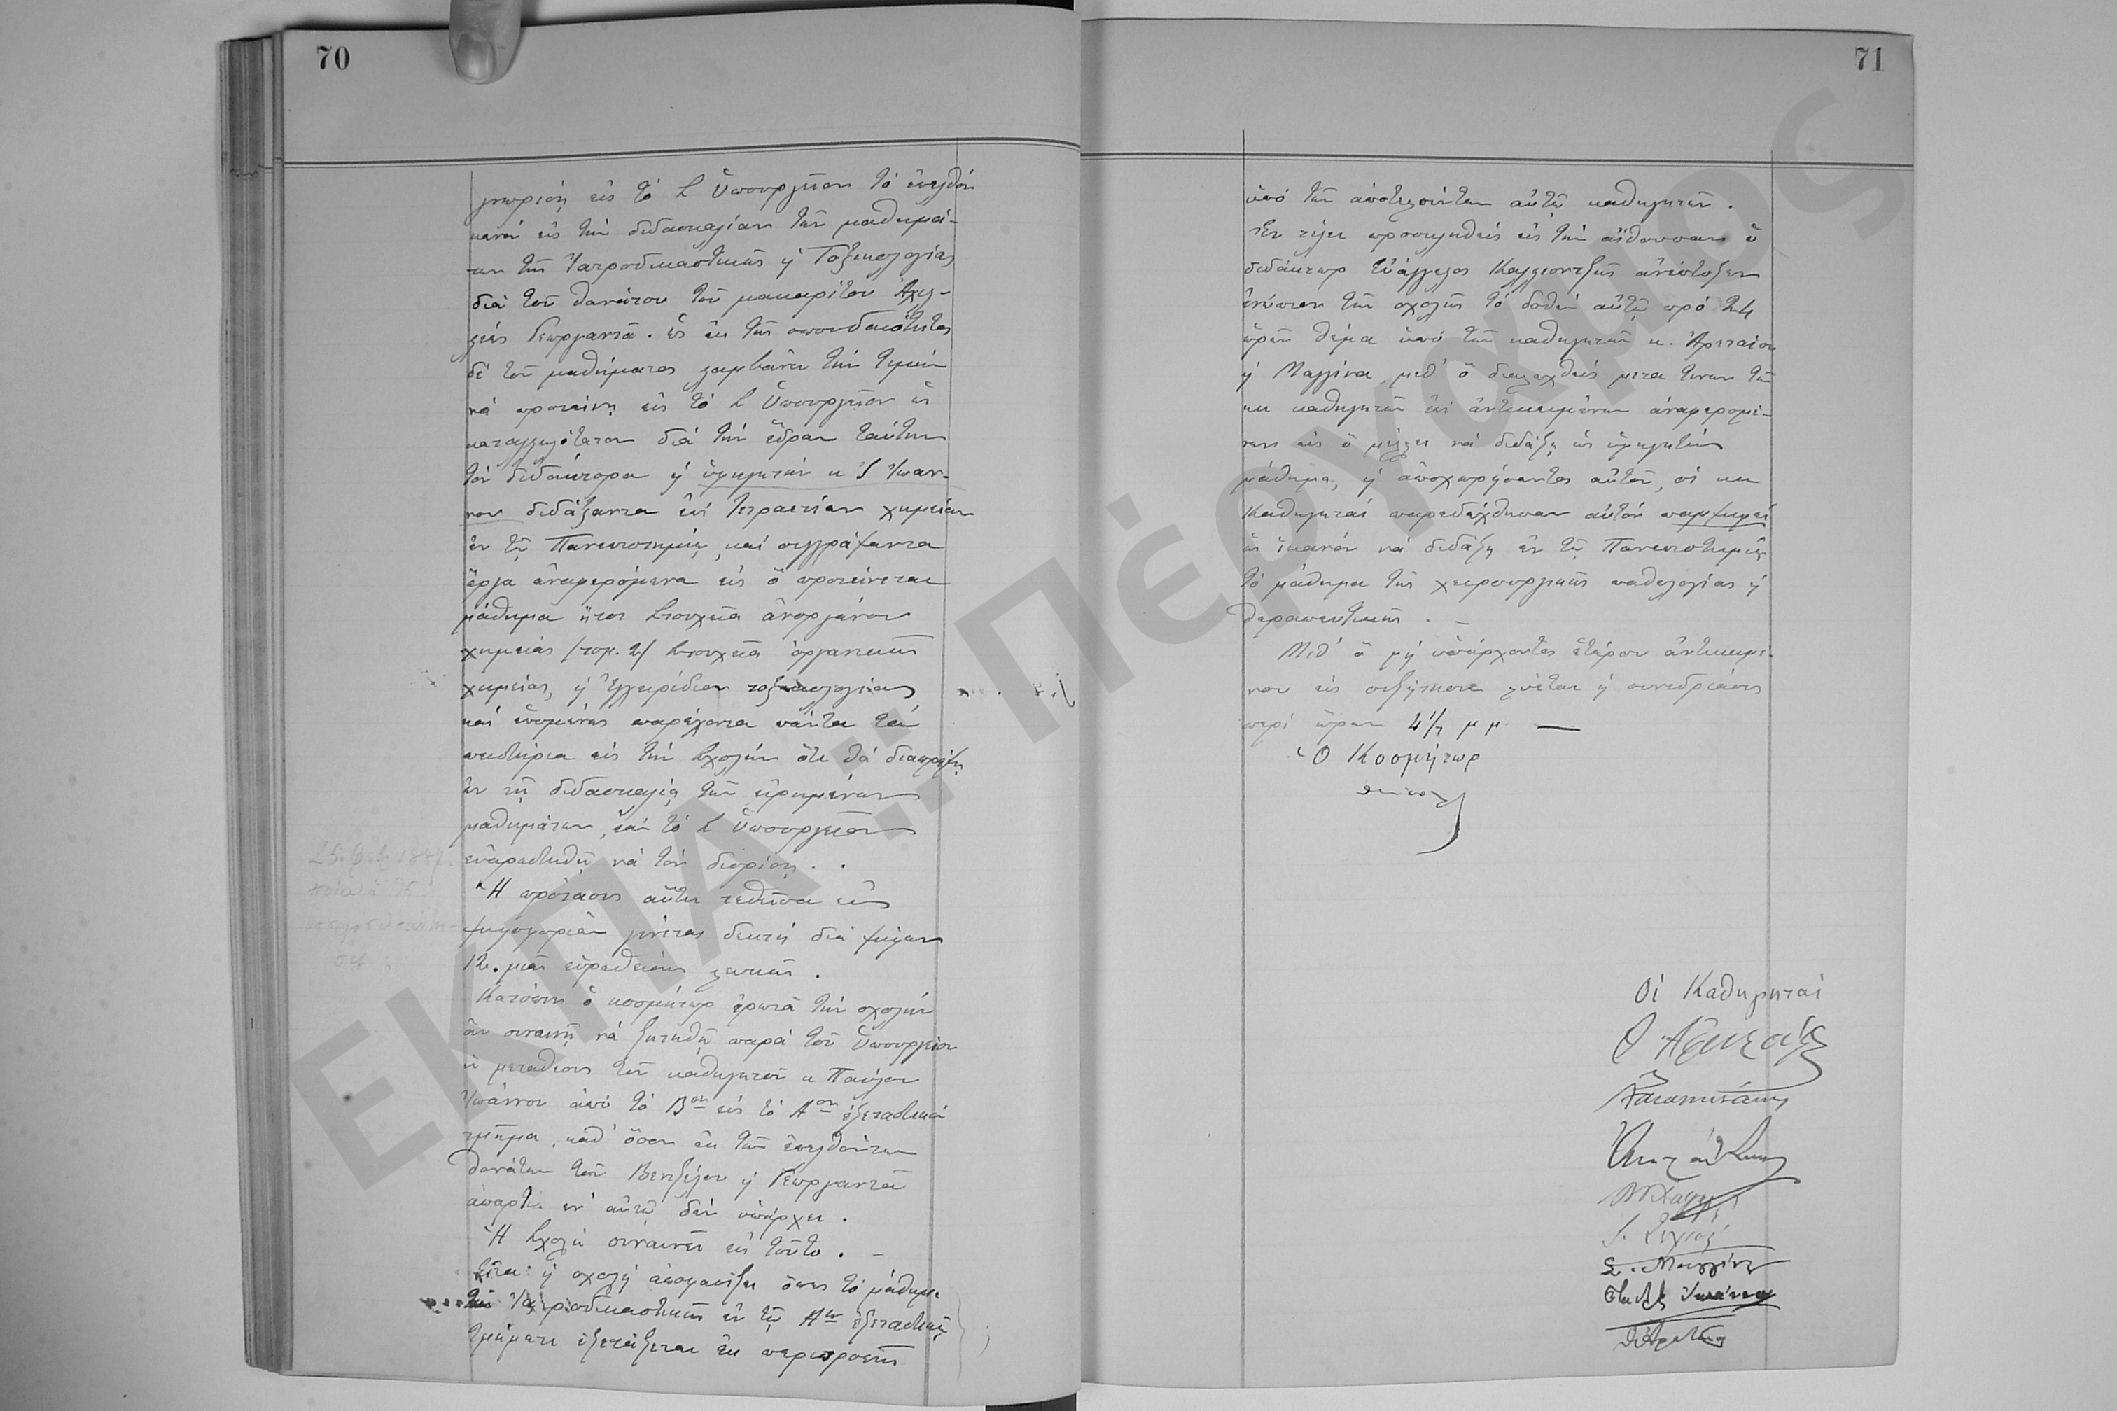 70
γνωρίσῃ εἰς τὸ Σ Ὑπουργεῖον τὸ ἐπελθὸν
κενὸν εἰς τὴν διδασκαλίαν τῶν μαθημά-
των τῆς Ἰατροδικαστικῆς ἢ Τοξικολογίας
διὰ τοῦ θανάτου τοῦ μακαρίτου Ἀχιλ-
λέως Γεωργαντᾶ. ὡς ἐκ τῆς σπουδαιότητος
δὲ τοῦ μαθήματος λαμβάνει τὴν τιμὴν
νὰ προτείνῃ εἰς τὸ Σ Ὑπουργεῖον ὡς
καταλληλότατον διὰ τὴν ἕδραν ταύτην
τὸν διδάκτορα ἢ ὑφηγητὴν κ Ἰωάν-
νου διδάξαντα ἐπὶ τετραετίαν χημείαν
ἐν τῷ Πανεπιστημίῳ, καὶ συγγράψαντα
ἔργα ἀναφερόμενα εἰς ὃ προτείνεται
μάθημα ἤτοι Στοιχεῖα ἀνοργάνου
χημείας (τομ. 2) Στοιχεῖα ὀργανικῆς
χημείας, ἢ Ἐγχειρίδιον τοξικολογίας
καὶ ἑπομένως παρέχοντα πάντα τὰ
πειστήρια εἰς τὴν Σχολὴν ὅτι θὰ διαπρέψῃ
ἐν τῇ διδασκαλίᾳ τῶν εἰρημένων
μαθημάτων, ἐὰν τὸ Σ Ὑπουργεῖον
εὐαρεστηθῇ νὰ τὸν διορίσῃ.
Ἡ πρότασις αὕτη τεθεῖσα εἰς
ψηφοφορίαν γίνεται δεκτὴ διὰ ψήφων
12. μιᾶς εὑρεθείσης λευκῆς.
Κατόπιν ὁ κοσμήτωρ ἐρωτᾷ τὴν σχολὴν
ἂν συναινῇ νὰ ζητηθῇ παρὰ τοῦ Ὑπουργείου
ἡ μετάθεσις τοῦ καθηγητοῦ κ Παύλου
Ἰωάννου ἀπὸ τὸ Βον εἰς τὸ Αον ἐξεταστικὸν
τμῆμα, καθ' ὅσον ἐκ τῶν ἐπελθόντων
θανάτων τοῦ Βενιζέλου ἢ Γεωργαντᾶ
ἀπαρτία ἐν αὐτῷ δὲν ὑπάρχει.
Ἡ Σχολὴ συναινεῖ εἰς τοῦτο. –
Εἶτα ἡ σχολὴ ἀποφασίζει ὅπως τὸ μάθημα
τῆς Ἰατροδικαστικῆς ἐν τῷ Αῳ ἐξεταστικῷ
τμήματι ἐξετάζεται ἐκ περιτροπῆς
71
ὑπὸ τῶν ἀποτελούντων αὐτὸ καθηγητῶν.
Ἐν τέλει προσκληθεὶς εἰς τὴν αἴθουσαν ὁ
διδάκτωρ Εὐάγγελος Καλλιοντζῆς ἀνέπτυξεν
ἐνώπιον τῆς σχολῆς τὸ δοθὲν αὐτῷ πρὸ 24
ὡρῶν θέμα ὑπὸ τῶν καθηγητῶν κ. Ἀρεταίου
ἢ Μαγγίνα, μεθ' ὃ διαλεχθεὶς μετὰ τινων τῶν
κκ καθηγητῶν ἐπὶ ἀντικειμένων ἀναφερομέ-
νων εἰς ὃ μέλλει νὰ διδάξῃ ὡς ὑφηγητὴς
μάθημα, ἢ ἀποχωρήσαντος αὐτοῦ, οἱ κκ
Καθηγηταὶ παρεδέχθησαν αὐτὸν παμψηφεὶ
ὡς ἱκανὸν νὰ διδάξῃ ἐν τῷ Πανεπιστημίῳ
τὸ μάθημα τῆς χειρουργικῆς παθολογίας ἢ
θεραπευτικῆς. –
Μεθ' ὃ μὴ ὑπάρχοντος ἑτέρου ἀντικειμέ-
νου εἰς συζήτησιν λύεται ἡ συνεδρίασις
περὶ ὥραν 4 1/2 μ μ –
Ὁ Κοσμήτωρ
Οἱ Καθηγηταὶ
Σ. Μαγγίνας
Παῦλος Ἰωάννου
Θ Ἀρεταῖος
ΕΚΠΑ :: Πέργαμος